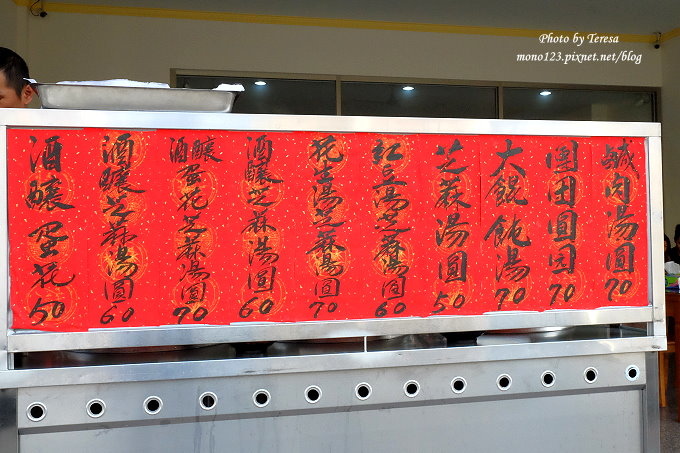 Photo by Teresa
mono123.pixnet.net/blog
鹹肉湯圓 70
團团圓圆 70
大餛飩湯 70
芝蔴湯圓 50
紅豆湯芝蔴湯圓 60
花生湯芝蔴湯圓 70
酒釀芝蔴湯圓 60
酒釀蛋花芝蔴湯圓 70
酒釀芝蔴湯圓 60
酒釀蛋花 50